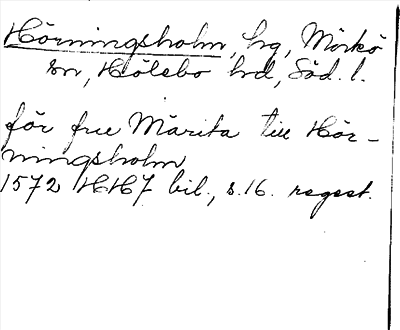 Hörningsholm, hg, Mörkö
sn, Hölebo hd, Söd. l.
för frue Märita till Hör-
ningsholm
1572 HH7 bil., s.16. regest.